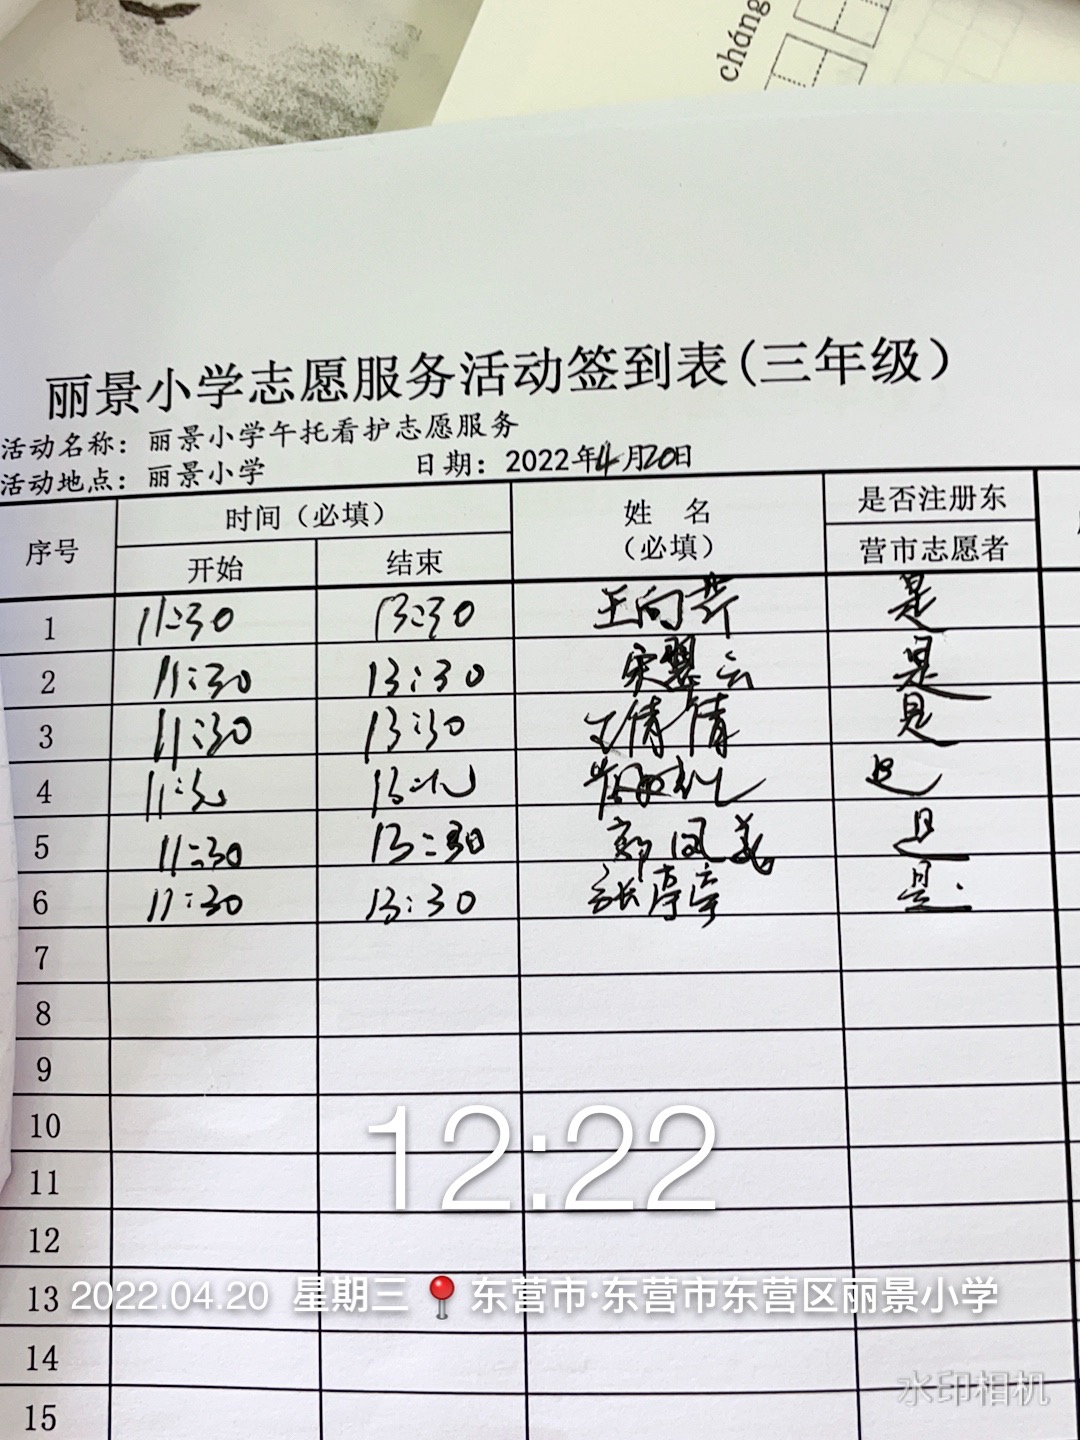 cháng
丽景小学志愿服务活动签到表(三年级)
活动名称：丽景小学午托看护志愿服务
活动地点：丽景小学 日期：2022年4月20日
序号 时间（必填） 姓 名（必填） 是否注册东营市志愿者
开始 结束
1 11:30 13:30 王向芹 是
2 11:30 13:30 宋翠云 是
3 11:30 13:30 丁倩倩 是
4 是
5 11:30 13:30 郭凤美 是
6 11:30 13:30 张亭亭 是
7
8
9
10
12:22
11
12
13
2022.04.20 星期三 东营市·东营市东营区丽景小学
14
水印相机
15